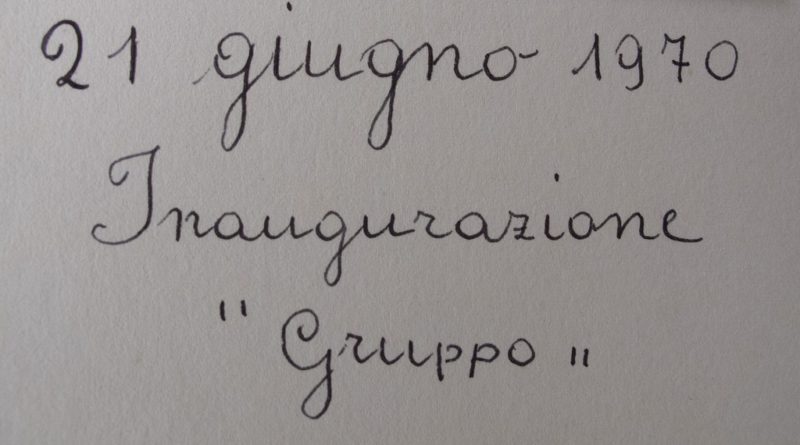 21 giugno 1970
Inaugurazione
"Gruppo"